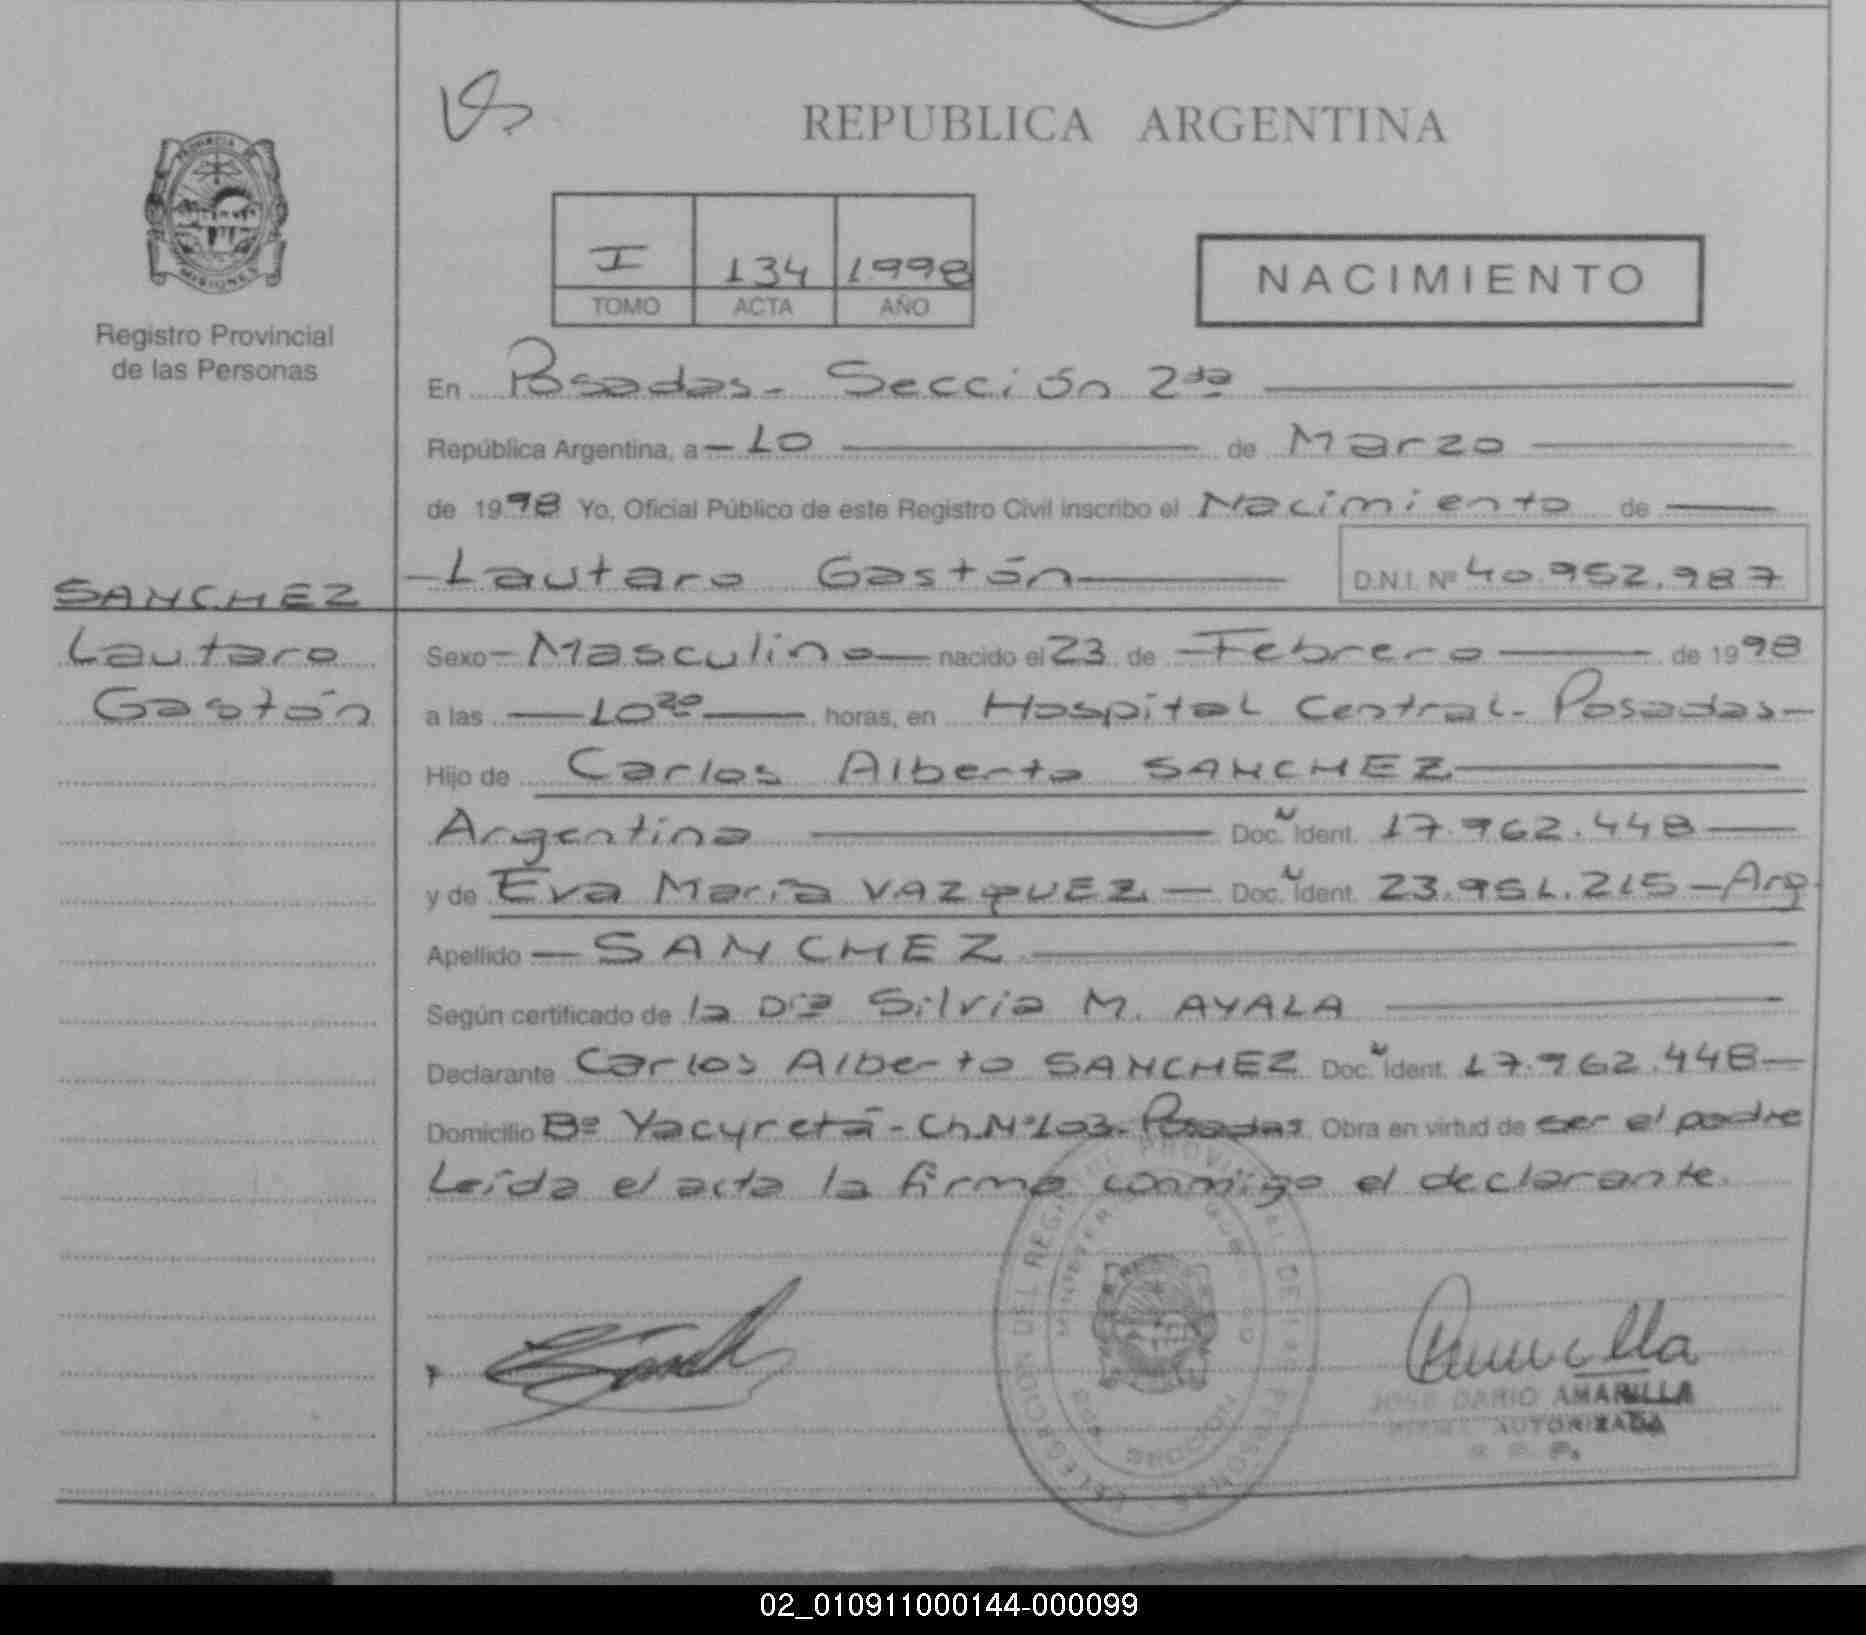 REPUBLICA ARGENTINA
PROVINCIA
MISIONES
Registro Provincial
de las Personas
I 134 1998
TOMO ACTA AÑO
NACIMIENTO
En Posadas - Sección 2da
República Argentina, a - 10 de Marzo
de 1998 Yo, Oficial Público de este Registro Civil inscribo el Nacimiento de
- Lautaro Gastón D.N.I. Nº 40.952.987
SANCHEZ
Lautaro
Gastón
Sexo - Masculino nacido el 23 de Febrero de 1998
a las 10 horas, en Hospital Central - Posadas -
Hijo de Carlos Alberto SANCHEZ
Argentina Doc. Ident. 17.962.448
y de Eva María VAZQUEZ - Doc. Ident. 23.951.215 - Arg
Apellido - SANCHEZ
Según certificado de la Dra Silvia M. AYALA
Declarante Carlos Alberto SANCHEZ Doc. Ident. 17.962.448 -
Domicilio Bº Yacyretá - Ch. Nº 103 - Posadas Obra en virtud de ser el padre
Leída el acta la firma conmigo el declarante.
JOSE DARIO AMARILLA
AUTORIZADA
02_010911000144-000099